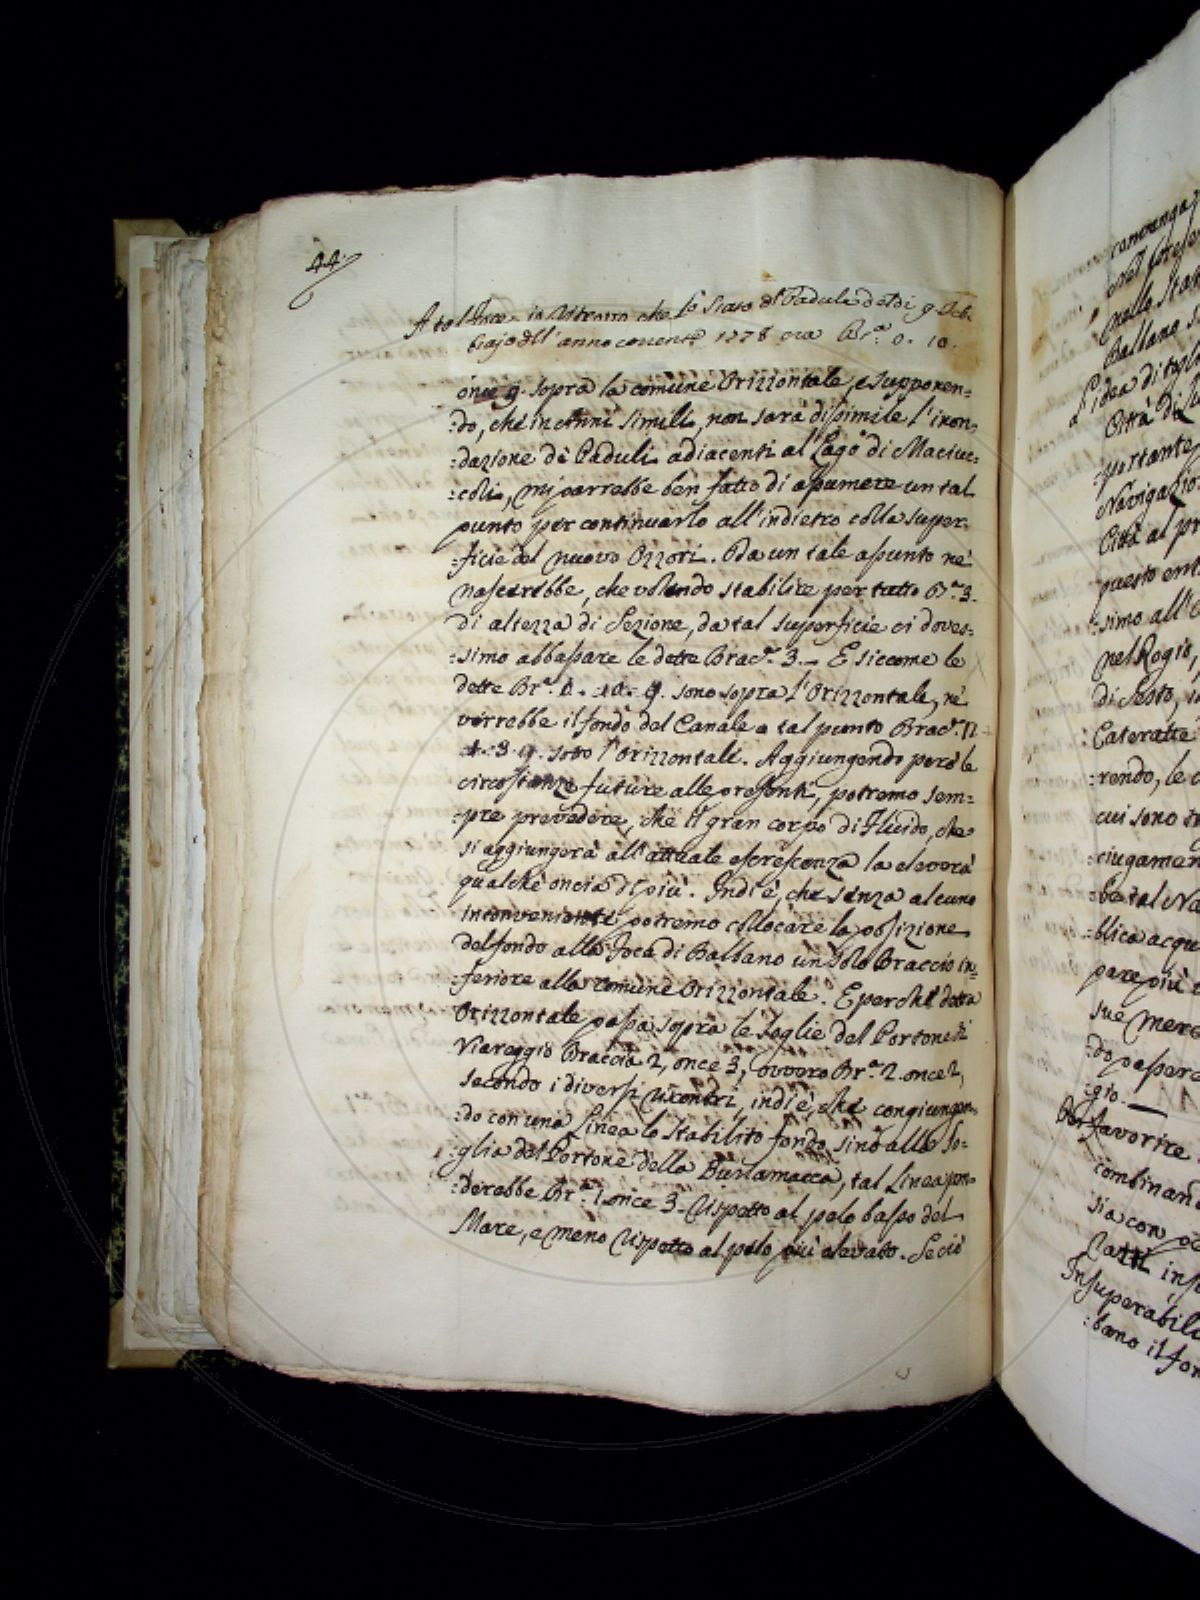 44.
A tal foce io ritrovo che lo Stato dl Padule del dì 9. Feb:
brajo dell'anno corrente 1778 era Br.ª 0. 10.
oncie 9. sopra la comune Orizzontale, e supponen:
:do, che in anni simili, non sarà dissimile l'inon:
:dazione de Paduli adiacenti al Lago di Maciuc:
:coli, mi parrebbe ben fatto di assumere un tal
punto per continuarlo all'indietro colla super:
:ficie del nuovo Ozzori. Da un tale assunto ne
nascerebbe, che volendo stabilire per tutto B.ª 3.
di altezza di Sezione, da tal superficie ci doves:
:simo abbassare le dette Brac.ª 3. E siccome le
dette Br.ª 0. 10. 9. sono sopra l'Orizzontale, ne
verrebbe il fondo del Canale a tal punto Brac.ª 2
3. 9. sotto l'Orizzontale. Aggiungendo però le
circostanze future alle presenti, potremo sem:
:pre prevedere, che il gran corpo di Fluido, che
si aggiungerà all'attuale escrescenza la eleverà
qualche oncia di più. Indi è, che senza alcuno
inconveniente potremo collocare la posizione
del fondo alla Foca di Balbano un solo Braccio in:
:feriore alla comune Orizzontale. E perchè detta
Orizzontale passa sopra le soglie del Portone di
Viareggio Braccia 2, once 3, ovvero Br.ª 2. once 2,
secondo i diversi riscontri, indi è, che congiungen:
:do con una Linea lo stabilito fondo sino alla So:
:glia del Portone della Burlamacca, tal Linea pen:
:derebbe Br.ª 1. once 3. rispetto al pelo basso del
Mare, e meno rispetto al pelo più elevato. Se ciò
convenga
nel
nelle
Balbano
L'idea di
Città di
portante
Navigazio
Città al
questo
:simo all'
nel Rogio,
di Sesto,
Cateratte
:rendo, le
cui sono
:ciugamen
be tal Na
:blica acqu
pare più
sue merc
:do passare
:gio.
Per favorire
combinan
sia con
Insuperabil
:bano il fon